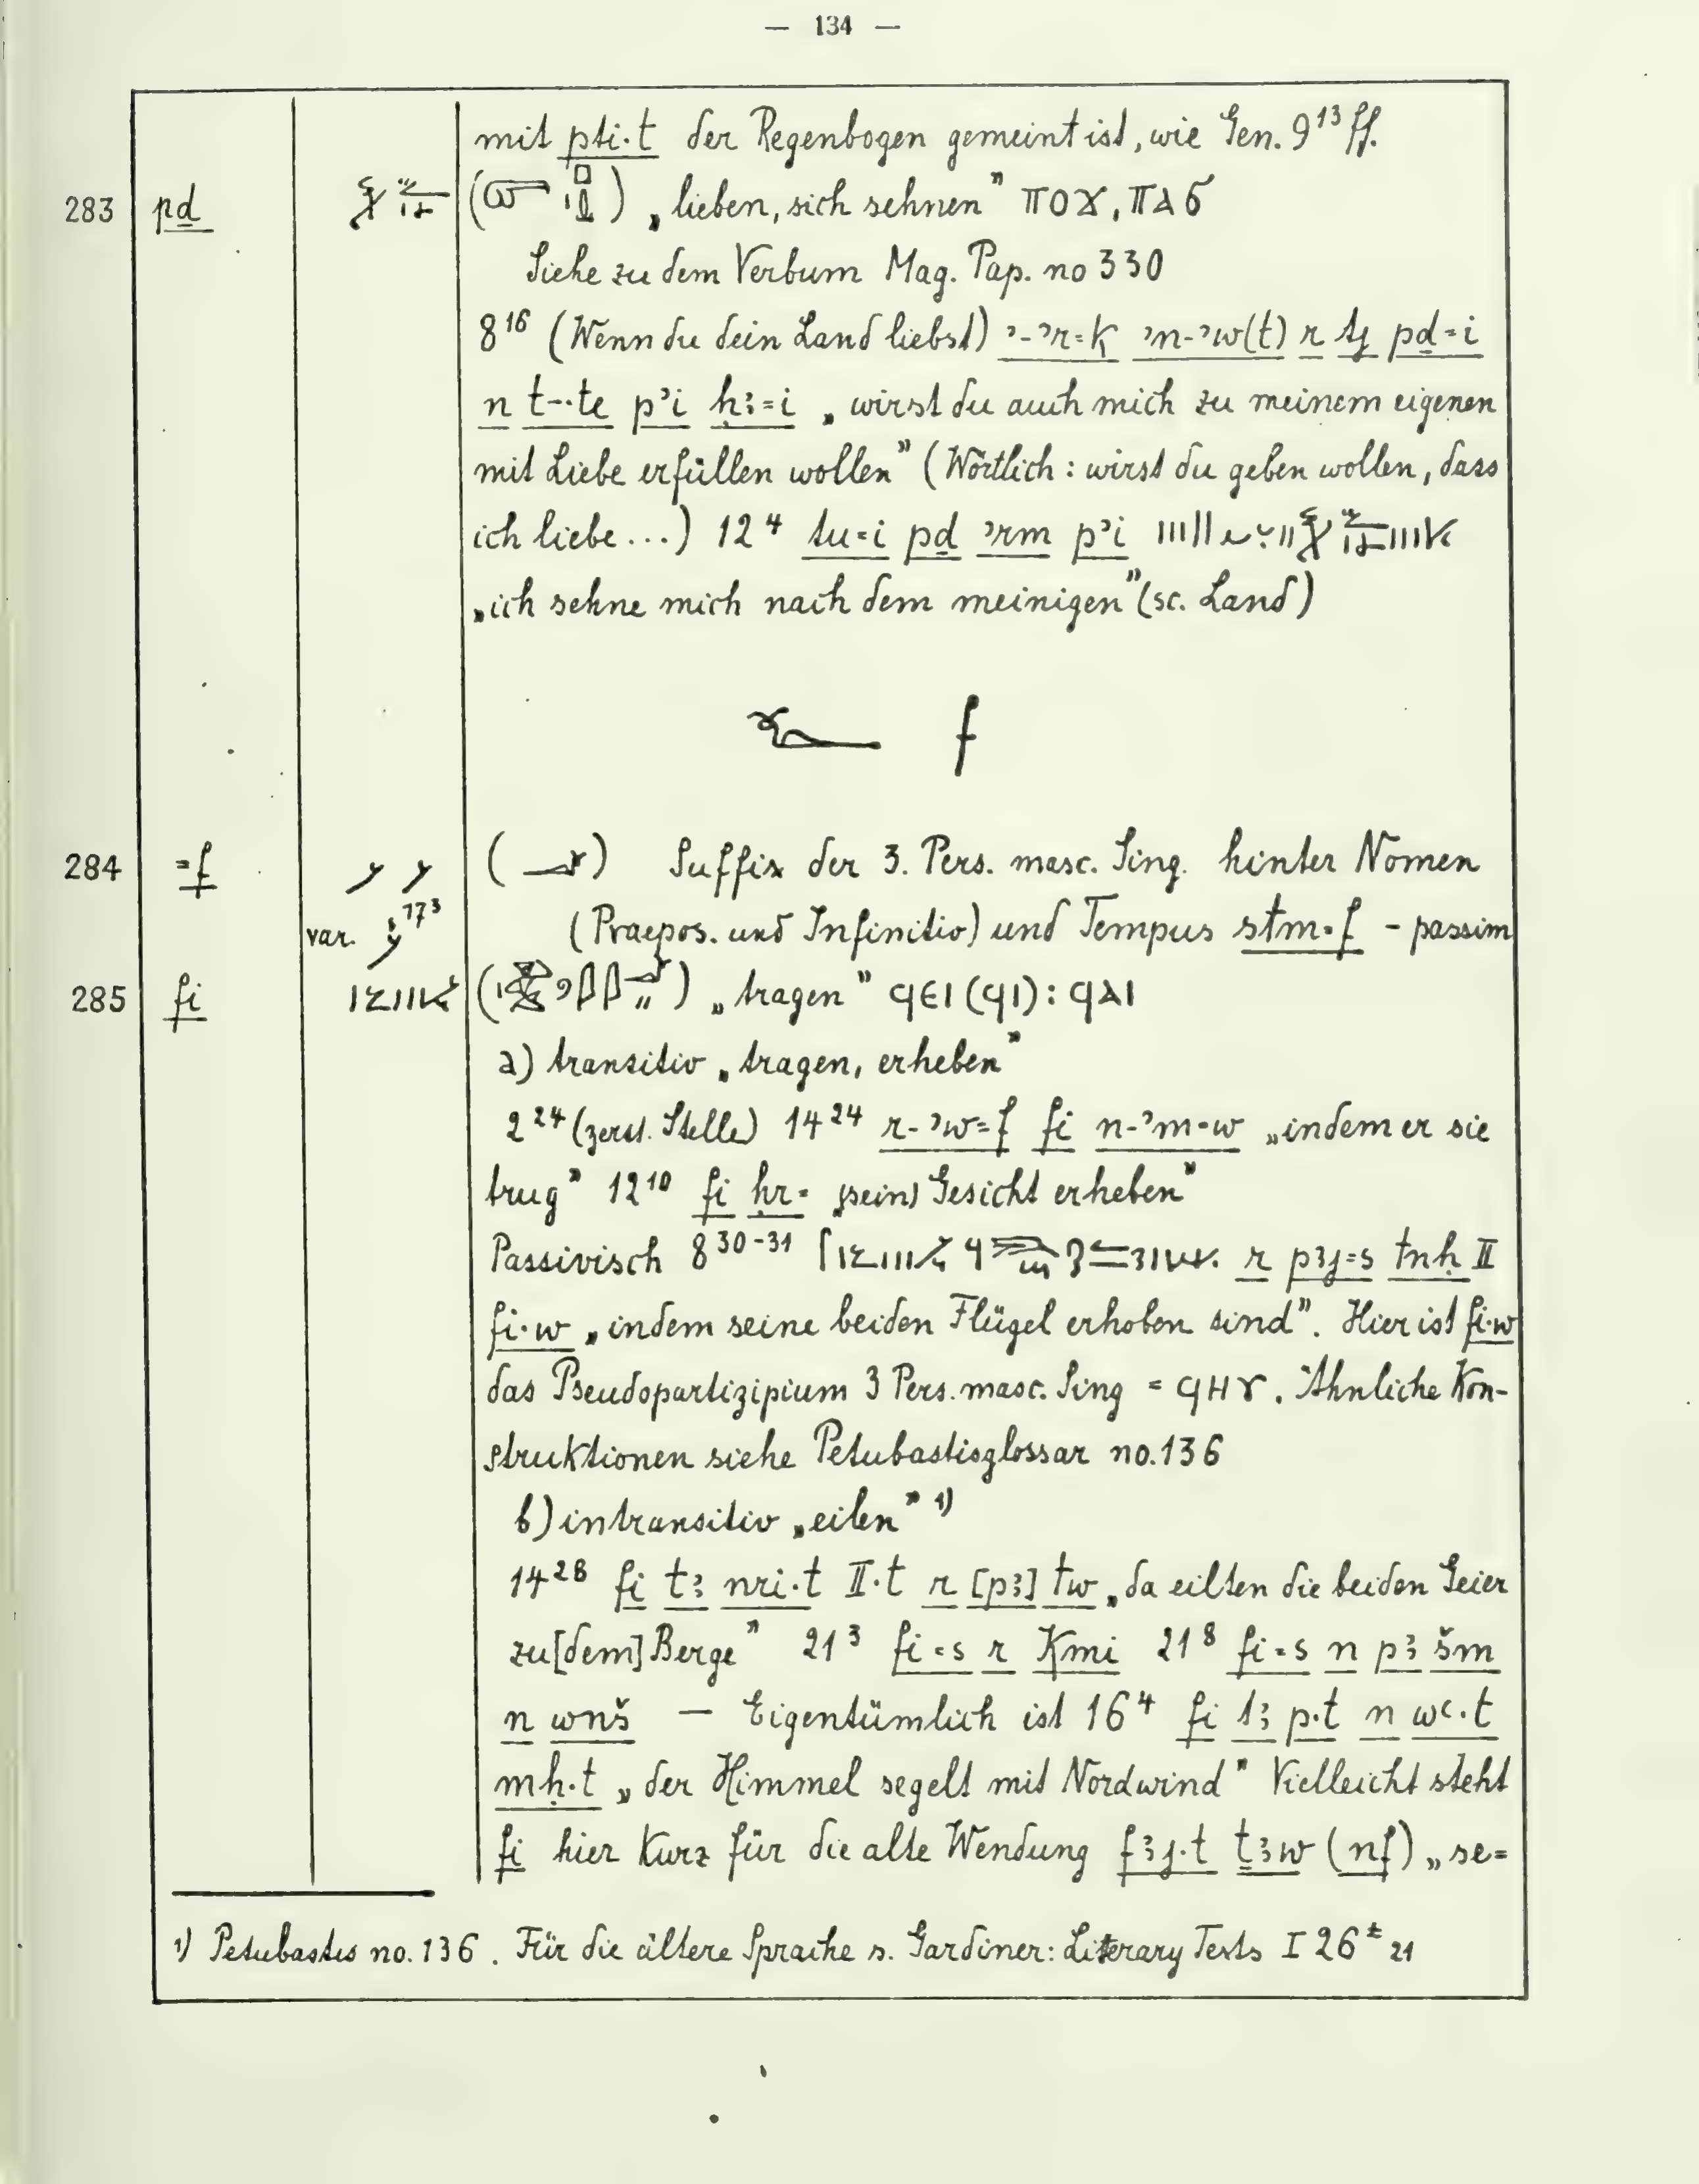 — 134 —
mit pti·t der Regenbogen gemeint ist, wie Gen. 9¹³ ff.
283 pḏ ( ) „lieben, sich sehnen" ⲡⲟϫ, ⲡⲁϭ
Siehe zu dem Verbum Mag. Pap. no 330
8¹⁶ (Wenn du dein Land liebst) ʾ-ʾr=k ʾn-ʾw(t) r ṯj pḏ=i
n t-·te pʾi ḥꜣ=i „wirst du auch mich zu meinem eigenen
mit Liebe erfüllen wollen" (Wörtlich: wirst du geben wollen, dass
ich liebe...) 12⁴ ṯu=i pḏ ʾrm pʾi
„ich sehne mich nach dem meinigen" (sc. Land)
f
284 =f ( ) Suffix der 3. Pers. masc. Sing. hinter Nomen
var. 17³ (Praepos. und Infinitiv) und Tempus stm·f - passim
285 fi ( ) „tragen" ϥⲉⲓ (ϥⲓ) : ϥⲁⲓ
a) transitiv „tragen, erheben"
2²⁴ (zerst. Stelle) 14²⁴ r-ʾw=f fi n-ʾm·w „indem er sie
trug" 12¹⁰ fi ḥr= „(sein) Gesicht erheben"
Passivisch 8³⁰⁻³¹ r pꜣj=s tnḥ II
fi·w „indem seine beiden Flügel erhoben sind". Hier ist fi·w
das Pseudopartizipium 3 Pers. masc. Sing = ϥⲏⲩ. Ähnliche Kon-
struktionen siehe Petubastisglossar no. 136
b) intransitiv „eilen" ¹)
14²⁸ fi tꜣ nri·t II·t r [pꜣ] tw „da eilten die beiden Geier
zu [dem] Berge" 21³ fi=s r Kmi 21⁸ fi=s n pꜣ šm
n wnš — Eigentümlich ist 16⁴ fi tꜣ p·t n wꜥ·t
mḥ·t „der Himmel segelt mit Nordwind" Vielleicht steht
fi hier kurz für die alte Wendung fꜣj·t ṯꜣw (nf) „se=
¹) Petubastis no. 136. Für die ältere Sprache s. Gardiner: Literary Texts I 26 21